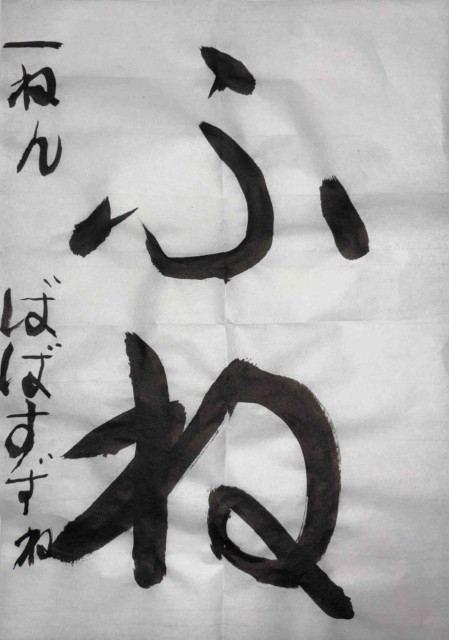 ふね
一ねん
ばばすずね